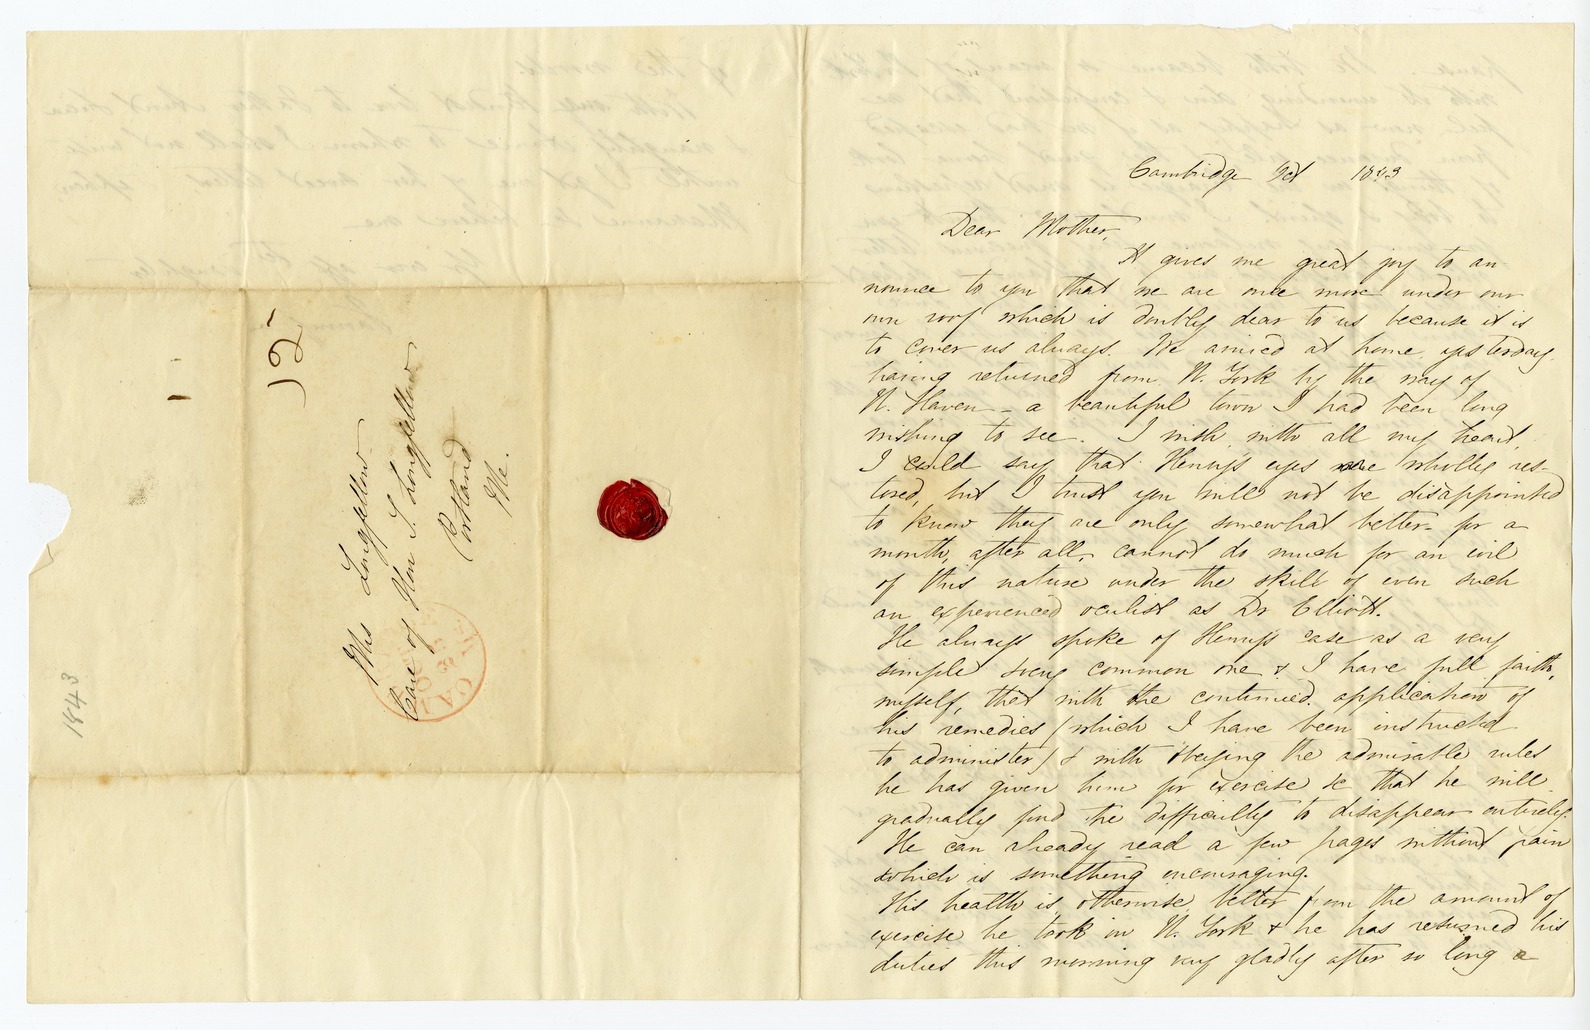 Cambridge Oct 1843
Dear Mother,
It gives me great joy to an-
nounce to you that we are once more under our
own roof which is doubly dear to us because it is
to cover us always. We arrived at home yesterday
having returned from N. York by the way of
N. Haven – a beautiful town I had been long
wishing to see. I wish with all my heart,
I could say that Henry's eyes were wholly res-
tored, but I trust you will not be disappointed
to know they are only somewhat better – for a
month, after all, cannot do much for an evil
of this nature under the skill of even such
an experienced oculist as Dr Elliott.
He always spoke of Henry's case as a very
simple & very common one & I have full faith,
myself, that with the continued application of
his remedies (which I have been instructed
to administer) & with obeying the admirable rules
he has given him for exercise &c that he will
gradually find the difficulty to disappear entirely.
He can already read a few pages without pain
which is something encouraging.
His health is otherwise better from the amount of
exercise he took in N. York & he has resumed his
duties this morning very gladly after so long a
Mrs Longfellow
Care of Hon S. Longfellow
Portland
Me.
12½
1843